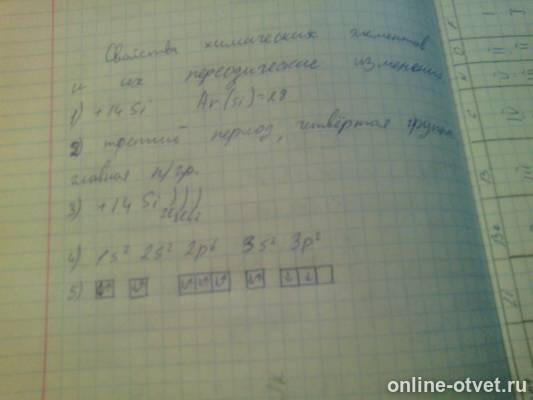 Свойства химических элементов
и их периодические изменения
1) +14 Si Ar(Si)=28
2) третий период, четвёртая группа
главная п/гр.
3) +14 Si )))
4) 1s² 2s² 2p⁶ 3s² 3p²
5)
online-otvet.ru